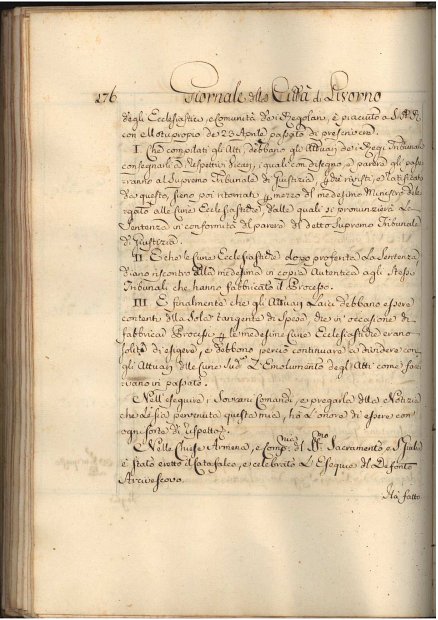 176 Giornale della Città di Livorno
degli Ecclesiastici, e Comunità dei Regolari, è piaciuto a S.A.R.
con Motuproprio de 23 Aprile passato di prescrivere.
I. Che compilati gli Atti debbano gli Attuari dei Regi Tribunali
consegnarli ai Respettivi Vicari, i quali con disegno, e parere gli passe
ranno al Supremo Tribunale di Giustizia, e dei rivisti, e ratificati
da questo, sieno poi ritornati per mezzo del medesimo Ministro dele
egato alle Curie Ecclesiastiche, dalle quali si pronunzierà La
Sentenza in conformità del parere del detto Supremo Tribunale
di Giustizia.
II. E che le Curie Ecclesiastiche dopo proferita La Sentenza
diano riscontro della medesima in copia Autentica agli Stessi
Tribunali che hanno fabbricato il Processo.
III. E finalmente che gli Attuari Laici debbano essere
contenti della Sola tangente di Spese, che in occasione di
fabbricar Processi per le medesime Curie Ecclesiastiche erano
soliti di esigere, e debbono perciò continuare a dividere con
gli Attuari delle Curie Sud.e L'Emolumento degli Atti come face
vano in passato.
Nell'eseguire i Sovrani Comandi, e pregarla della Notizia
che Le sia pervenuta questa mia, hà L'onore di essere con
ogni sorte di rispetto.
Nelle Chiese Armena, e Comp.nia del SS.mo Sacramento e S. Giulia
è stato eretto il Catafalco, e celebrato L'Esequie del Defonto
Arcivescovo.
Hà fatto